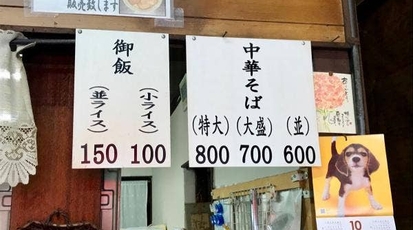 販売致します
御飯
(小ライス)
100
(並ライス)
150
中華そば
(並)
600
(大盛)
700
(特大)
800
10